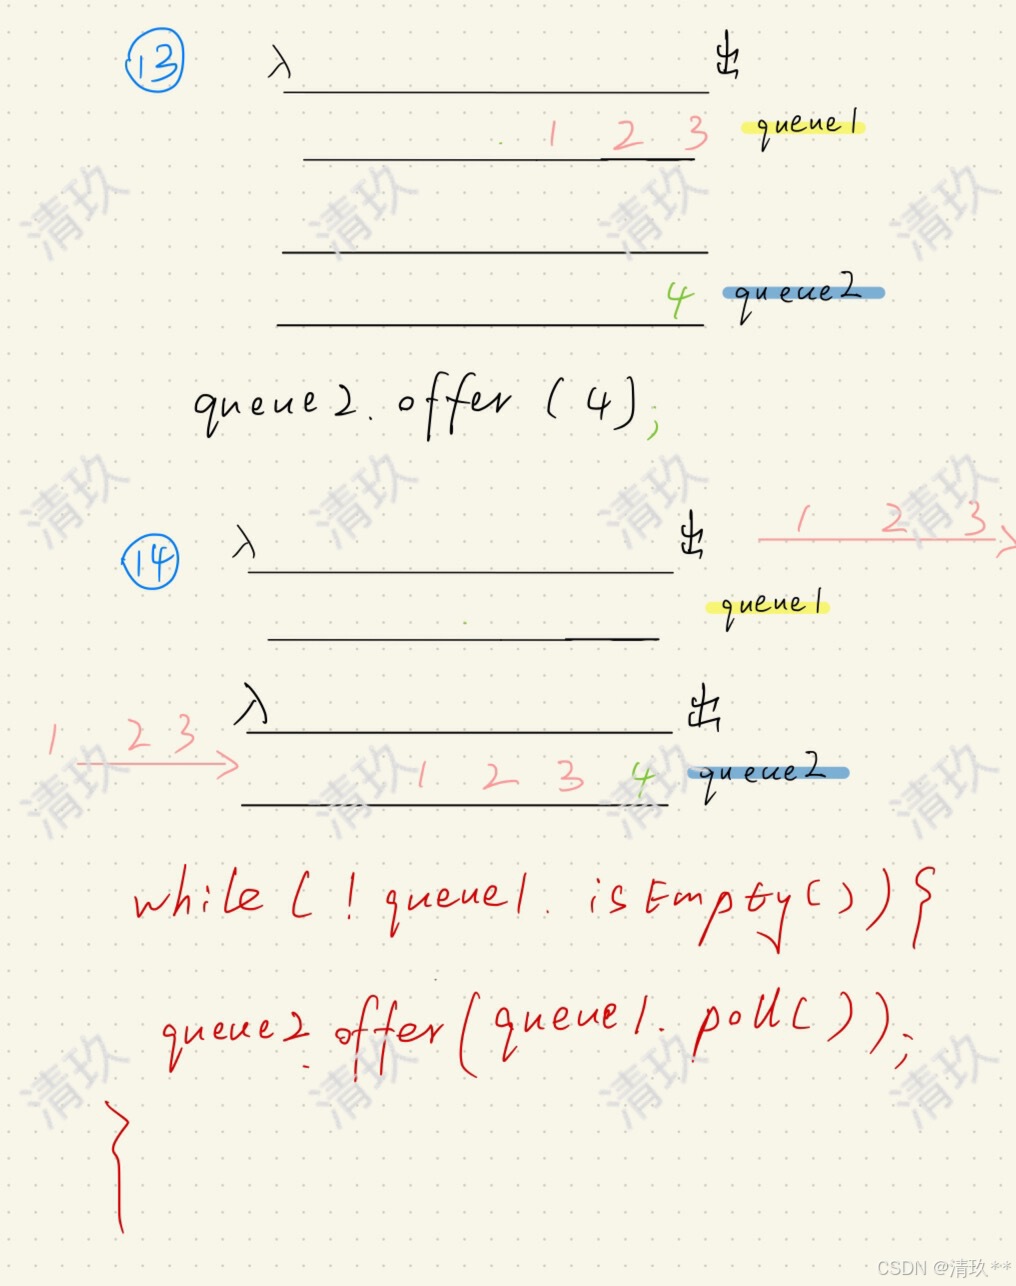 13
入 出
1 2 3 queue1
4 queue2
queue2.offer(4);
14
入 出 1 2 3
queue1
入 出
1 2 3
1 2 3 4 queue2
while(!queue1.isEmpty()){
queue2.offer(queue1.poll());
}
清玖 清玖 清玖 清玖
清玖 清玖 清玖 清玖
清玖 清玖 清玖 清玖
清玖 清玖 清玖 清玖
CSDN @清玖**